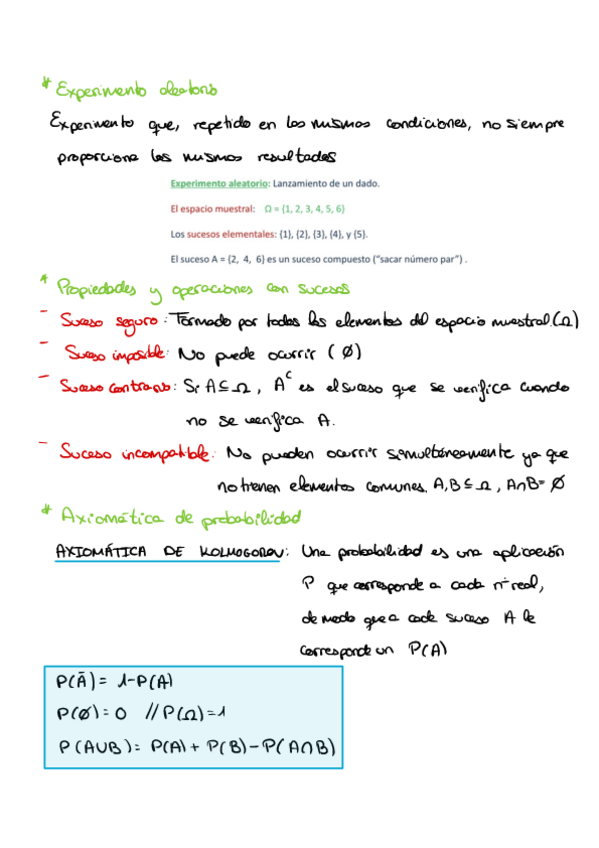 * Experimento aleatorio
Experimento que, repetido en las mismas condiciones, no siempre
proporciona los mismos resultados
Experimento aleatorio: Lanzamiento de un dado.
El espacio muestral: Ω = {1, 2, 3, 4, 5, 6}
Los sucesos elementales: {1}, {2}, {3}, {4}, y {5}.
El suceso A = {2, 4, 6} es un suceso compuesto ("sacar número par") .
* Propiedades y operaciones con sucesos
- Suceso seguro: Formado por todos los elementos del espacio muestral.(Ω)
- Suceso imposible: No puede ocurrir (Ø)
- Suceso contrario: Si A⊆Ω, Aᶜ es el suceso que se verifica cuando
no se verifica A.
- Suceso incompatible: No pueden ocurrir simultáneamente ya que
no tienen elementos comunes. A,B⊆Ω, A∩B=Ø
* Axiomática de probabilidad
AXIOMÁTICA DE KOLMOGOROV: Una probabilidad es una aplicación
P que corresponde a cada nº real,
de modo que a cada suceso A le
corresponde un P(A)
P(Ā) = 1-P(A)
P(Ø)=0 // P(Ω)=1
P(A∪B)= P(A)+P(B)-P(A∩B)